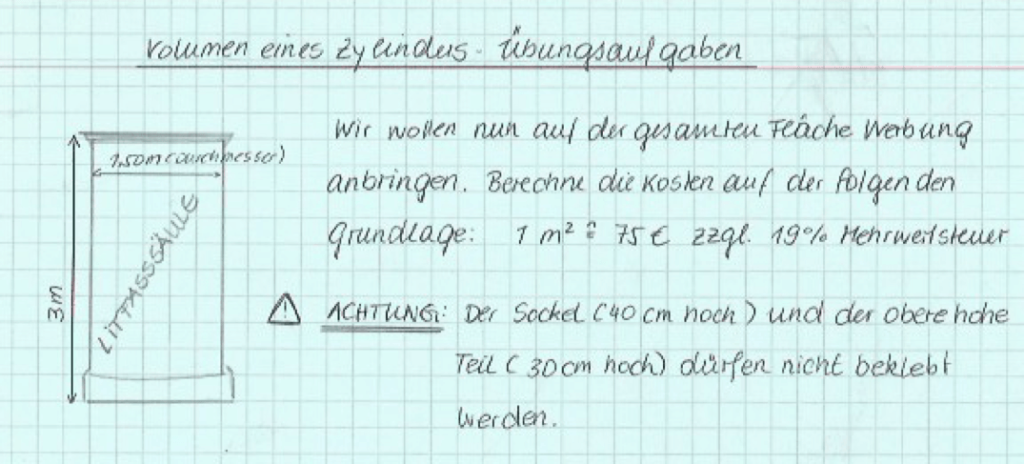 Volumen eines Zylinders - Übungsaufgaben
Wir wollen nun auf der gesamten Fläche Werbung
anbringen. Berechne die Kosten auf der folgenden
Grundlage: 1 m² ≙ 75 € zzgl. 19% Mehrwertsteuer
ACHTUNG: Der Sockel (40 cm hoch) und der obere hohe
Teil (30 cm hoch) dürfen nicht beklebt
werden.
1,50m (Durchmesser)
LITTASSSÄULE
3m